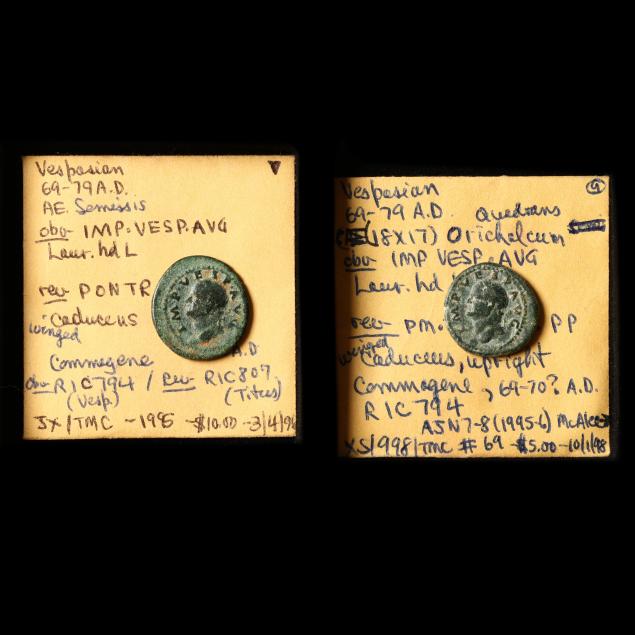 Vespasian
69-79 A.D.
AE. Semissis
obv IMP. VESP. AVG
Laur. hd L
rev PONTR
winged Caduceus
Commagene A.D
obv RIC794 / rev RIC 807
(Vesp) (Titus)
JX/TMC -1995 -$10.00 -3/4/96
IMP VESP AVG
Vespasian
69-79 A.D. Quadrans
(18x17) Orichalcum
obv IMP VESP. AVG
Laur. hd
rev PM. PP
winged Caduceus, upright
Commagene, 69-70? A.D.
RIC 794
AJN 7-8 (1995-6) McAlee
XS/998/TMC # 69 -$5.00 -10/1/98
IMP VESP AVG